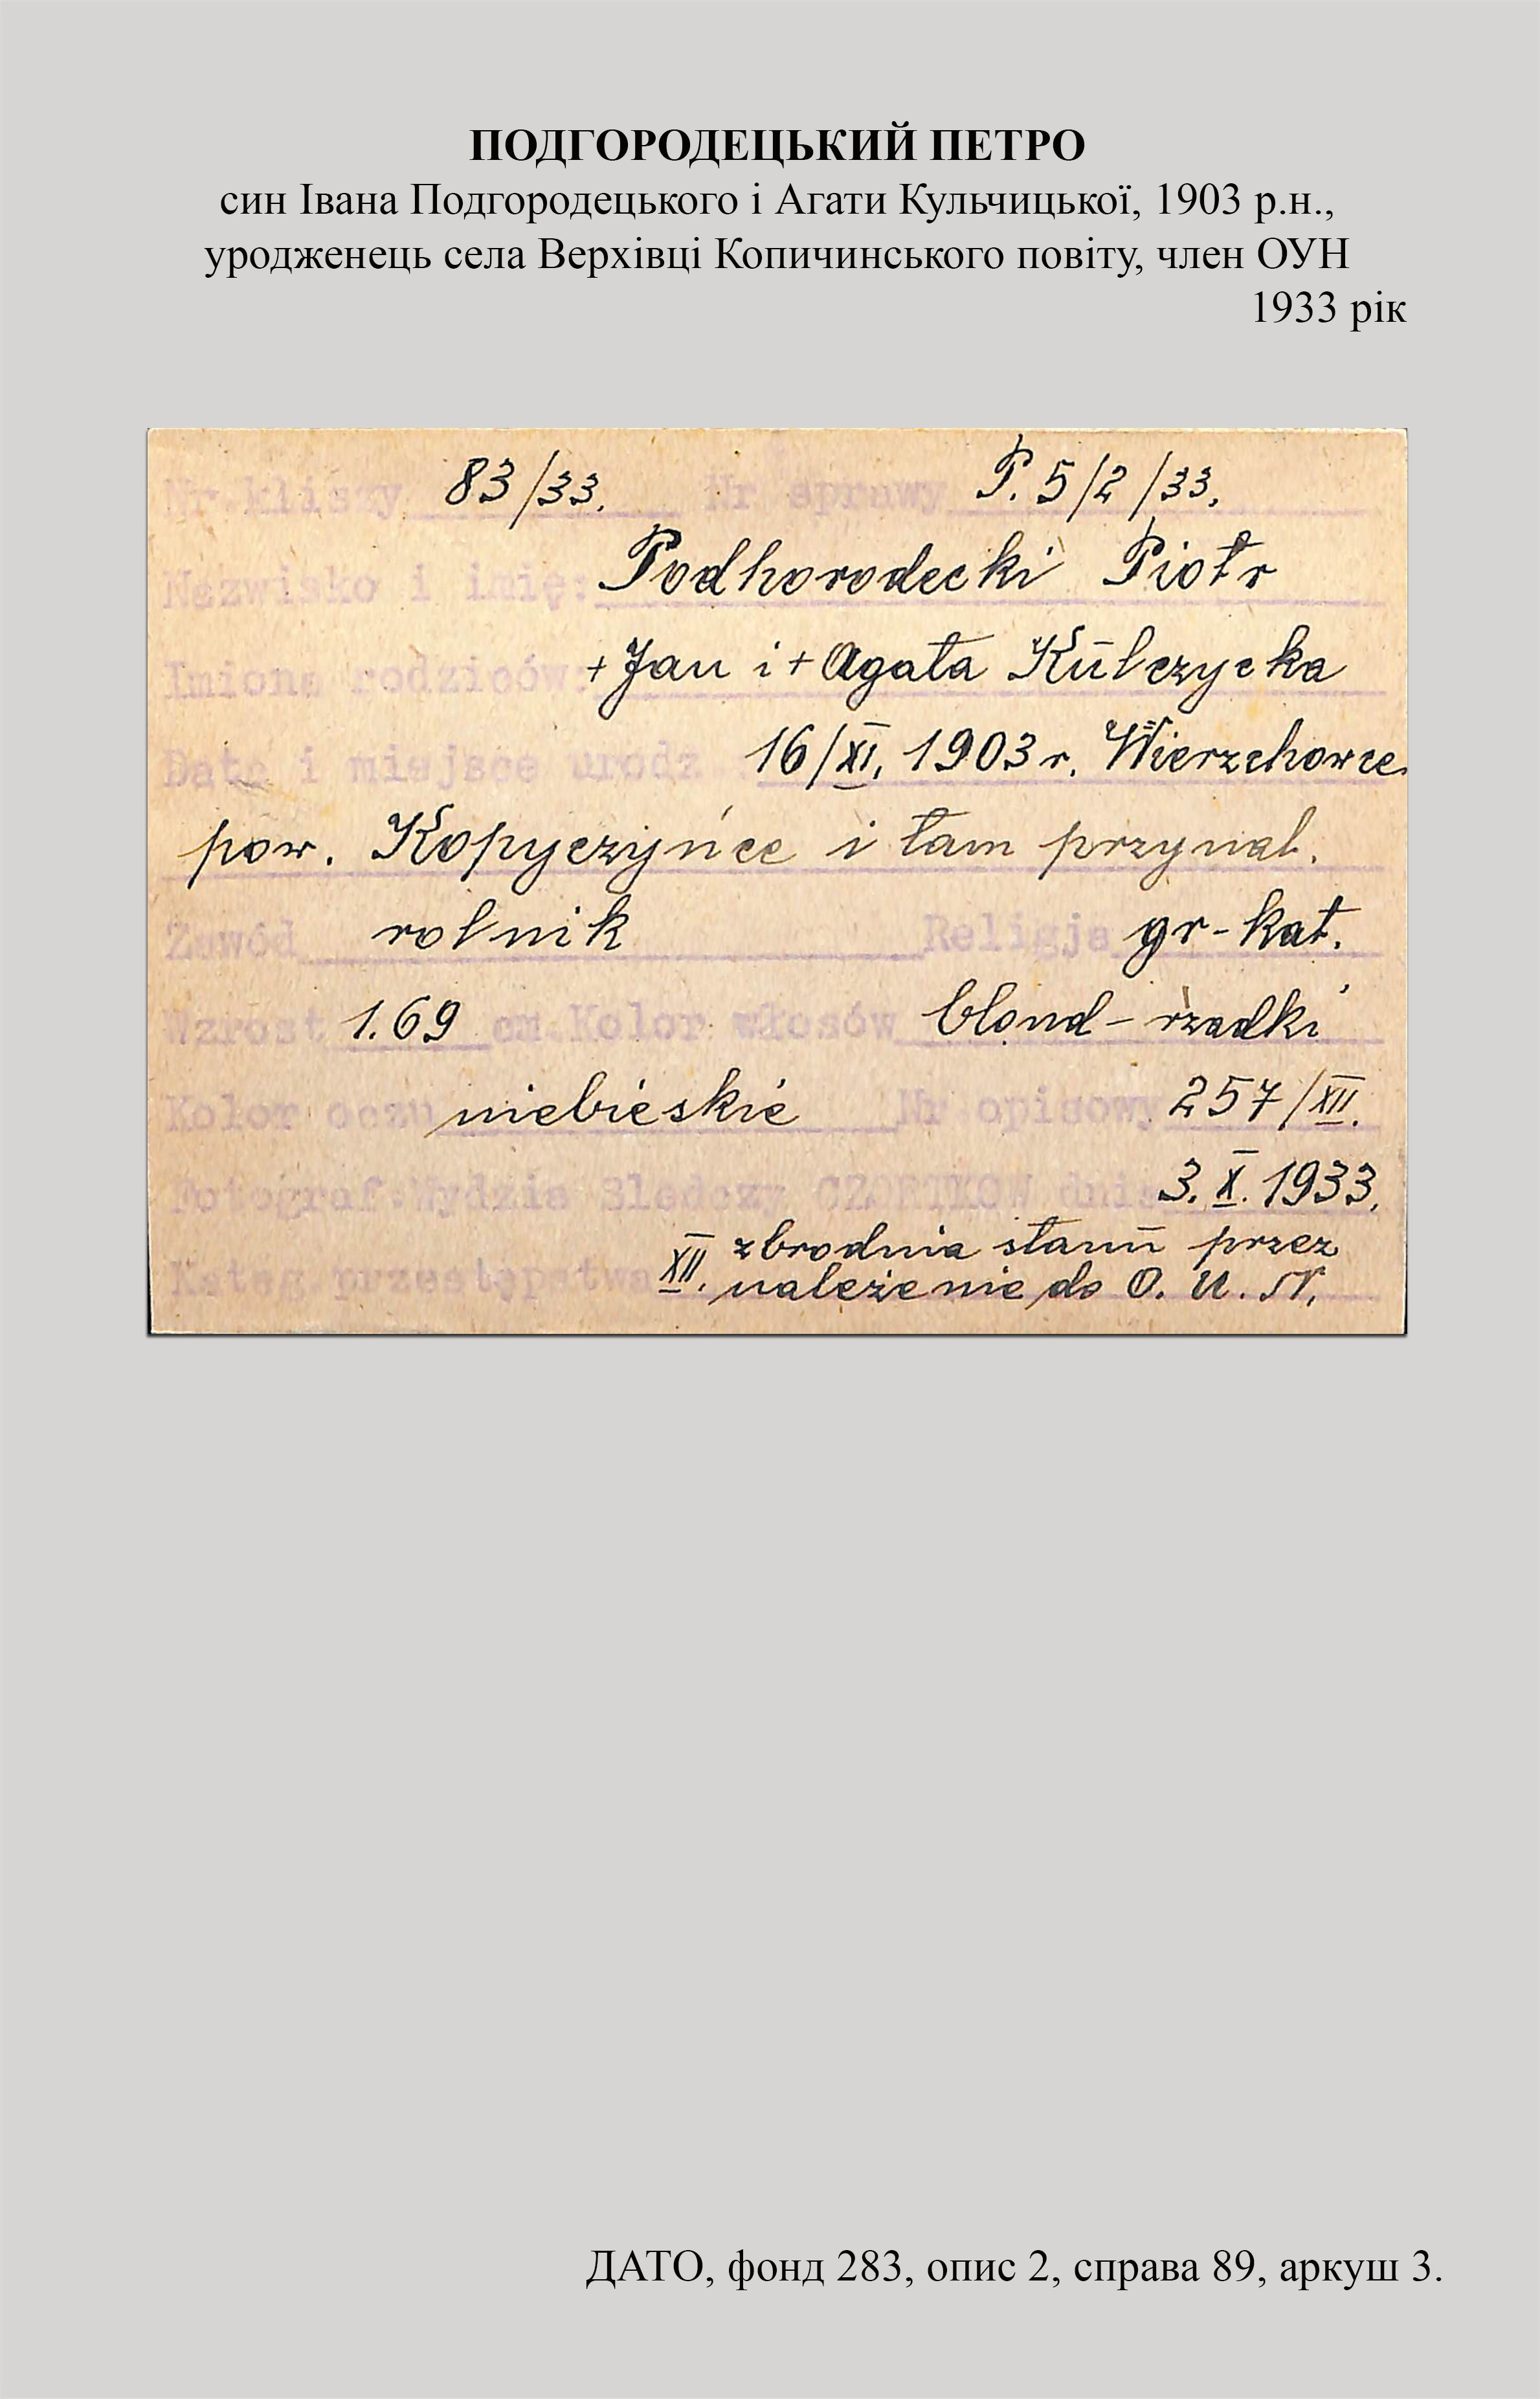 ПОДГОРОДЕЦЬКИЙ ПЕТРО
син Івана Подгородецького і Агати Кульчицької, 1903 р.н.,
уродженець села Верхівці Копичинського повіту, член ОУН
1933 рік
Nr.kliszy 83/33. Nr sprawy P. 5/2/33.
Nazwisko i imię: Podhorodecki Piotr
Imiona rodziców: +Jan i + Agata Kūlczycka
Data i miejsce urodz.: 16/XI. 1903 r. Wierzchowce
pow. Kopyczyńce i tam przynal.
Zawód rolnik Religja gr-kat.
Wzrost 1.69 cm.Kolor włosów blond - rzadki
Kolor oczu niebieskie Nr opisowy 257/XII.
Fotograf.Wydzia Śledczy CZORTKOW dnia 3. X. 1933.
Kateg.przestępstwa XII. zbrodnia stanū przez
należenie do O. U. N.
ДАТО, фонд 283, опис 2, справа 89, аркуш 3.